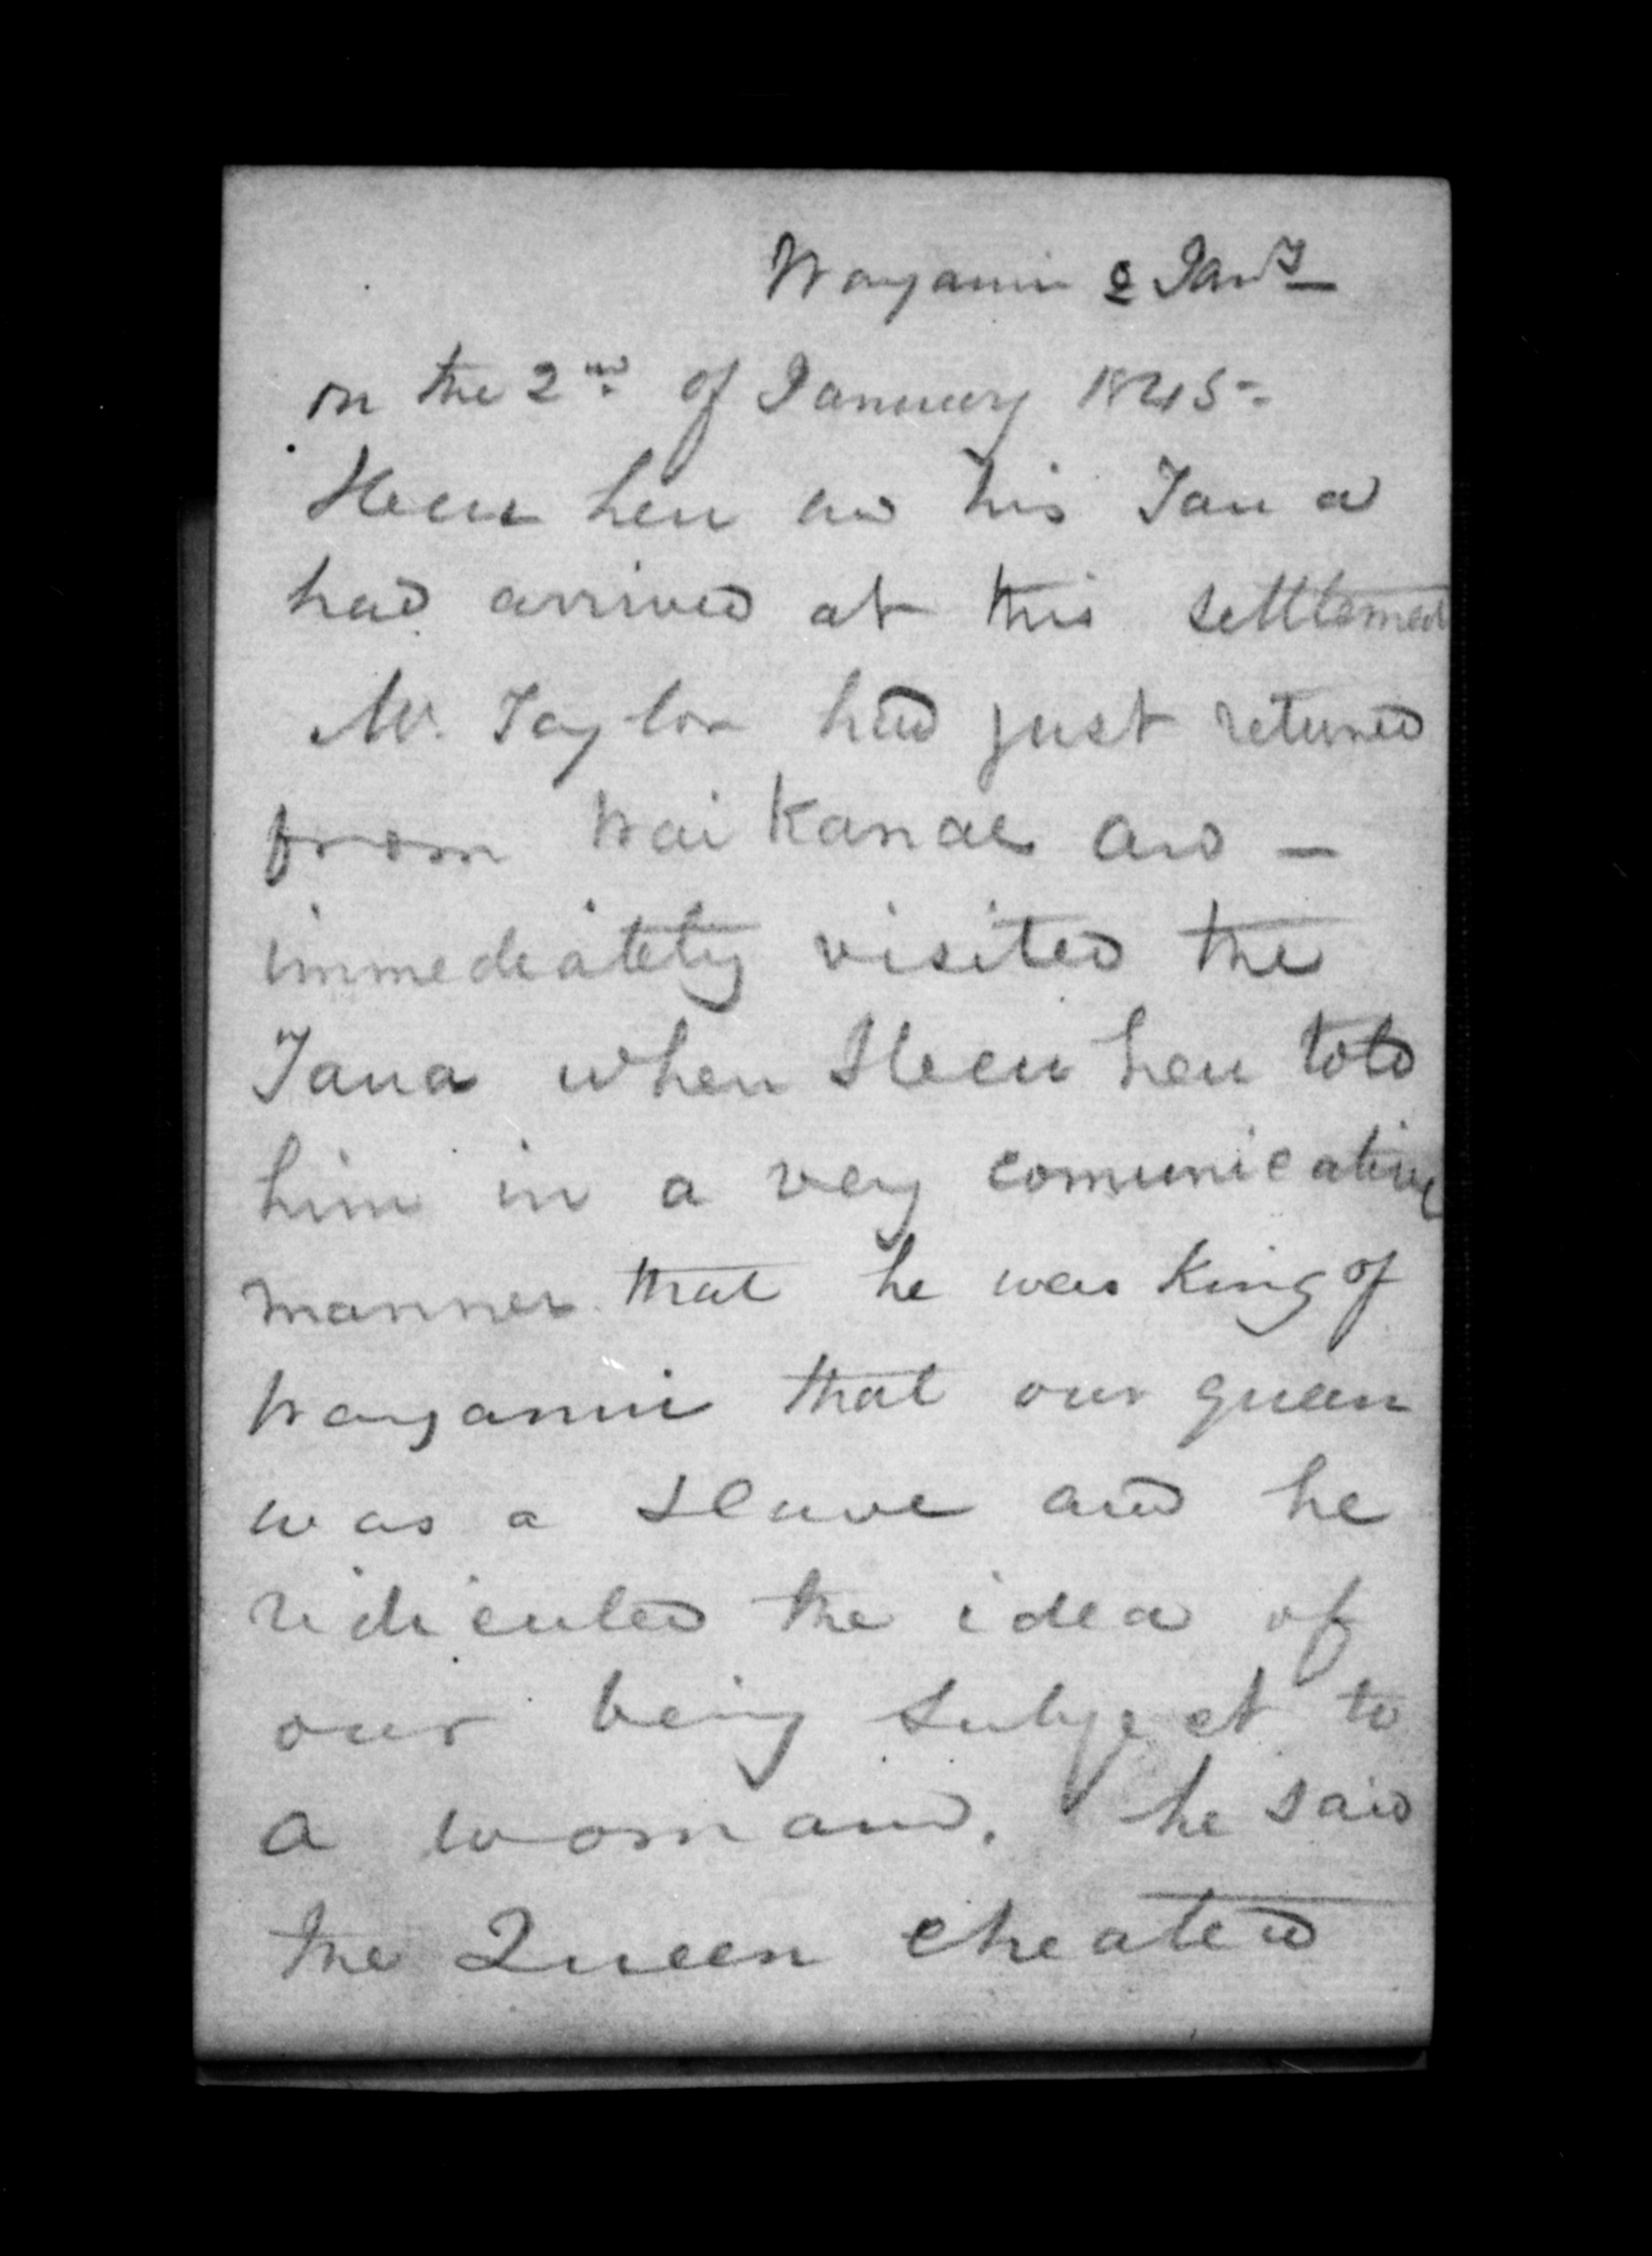 Wanganui 2 Jany
on the 2nd of January 1845-
Heu heu and his Taua
had arrived at this settlement
Mr. Taylor had just returned
from Wai Kanae and -
immediately visited the
Taua when Heeu heu told
him in a very comunicative
manner that he was King of
Wanganui that our queen
was a slave and he
ridiculed the idea of
our being subject to
a woman. he said
the Queen cheated